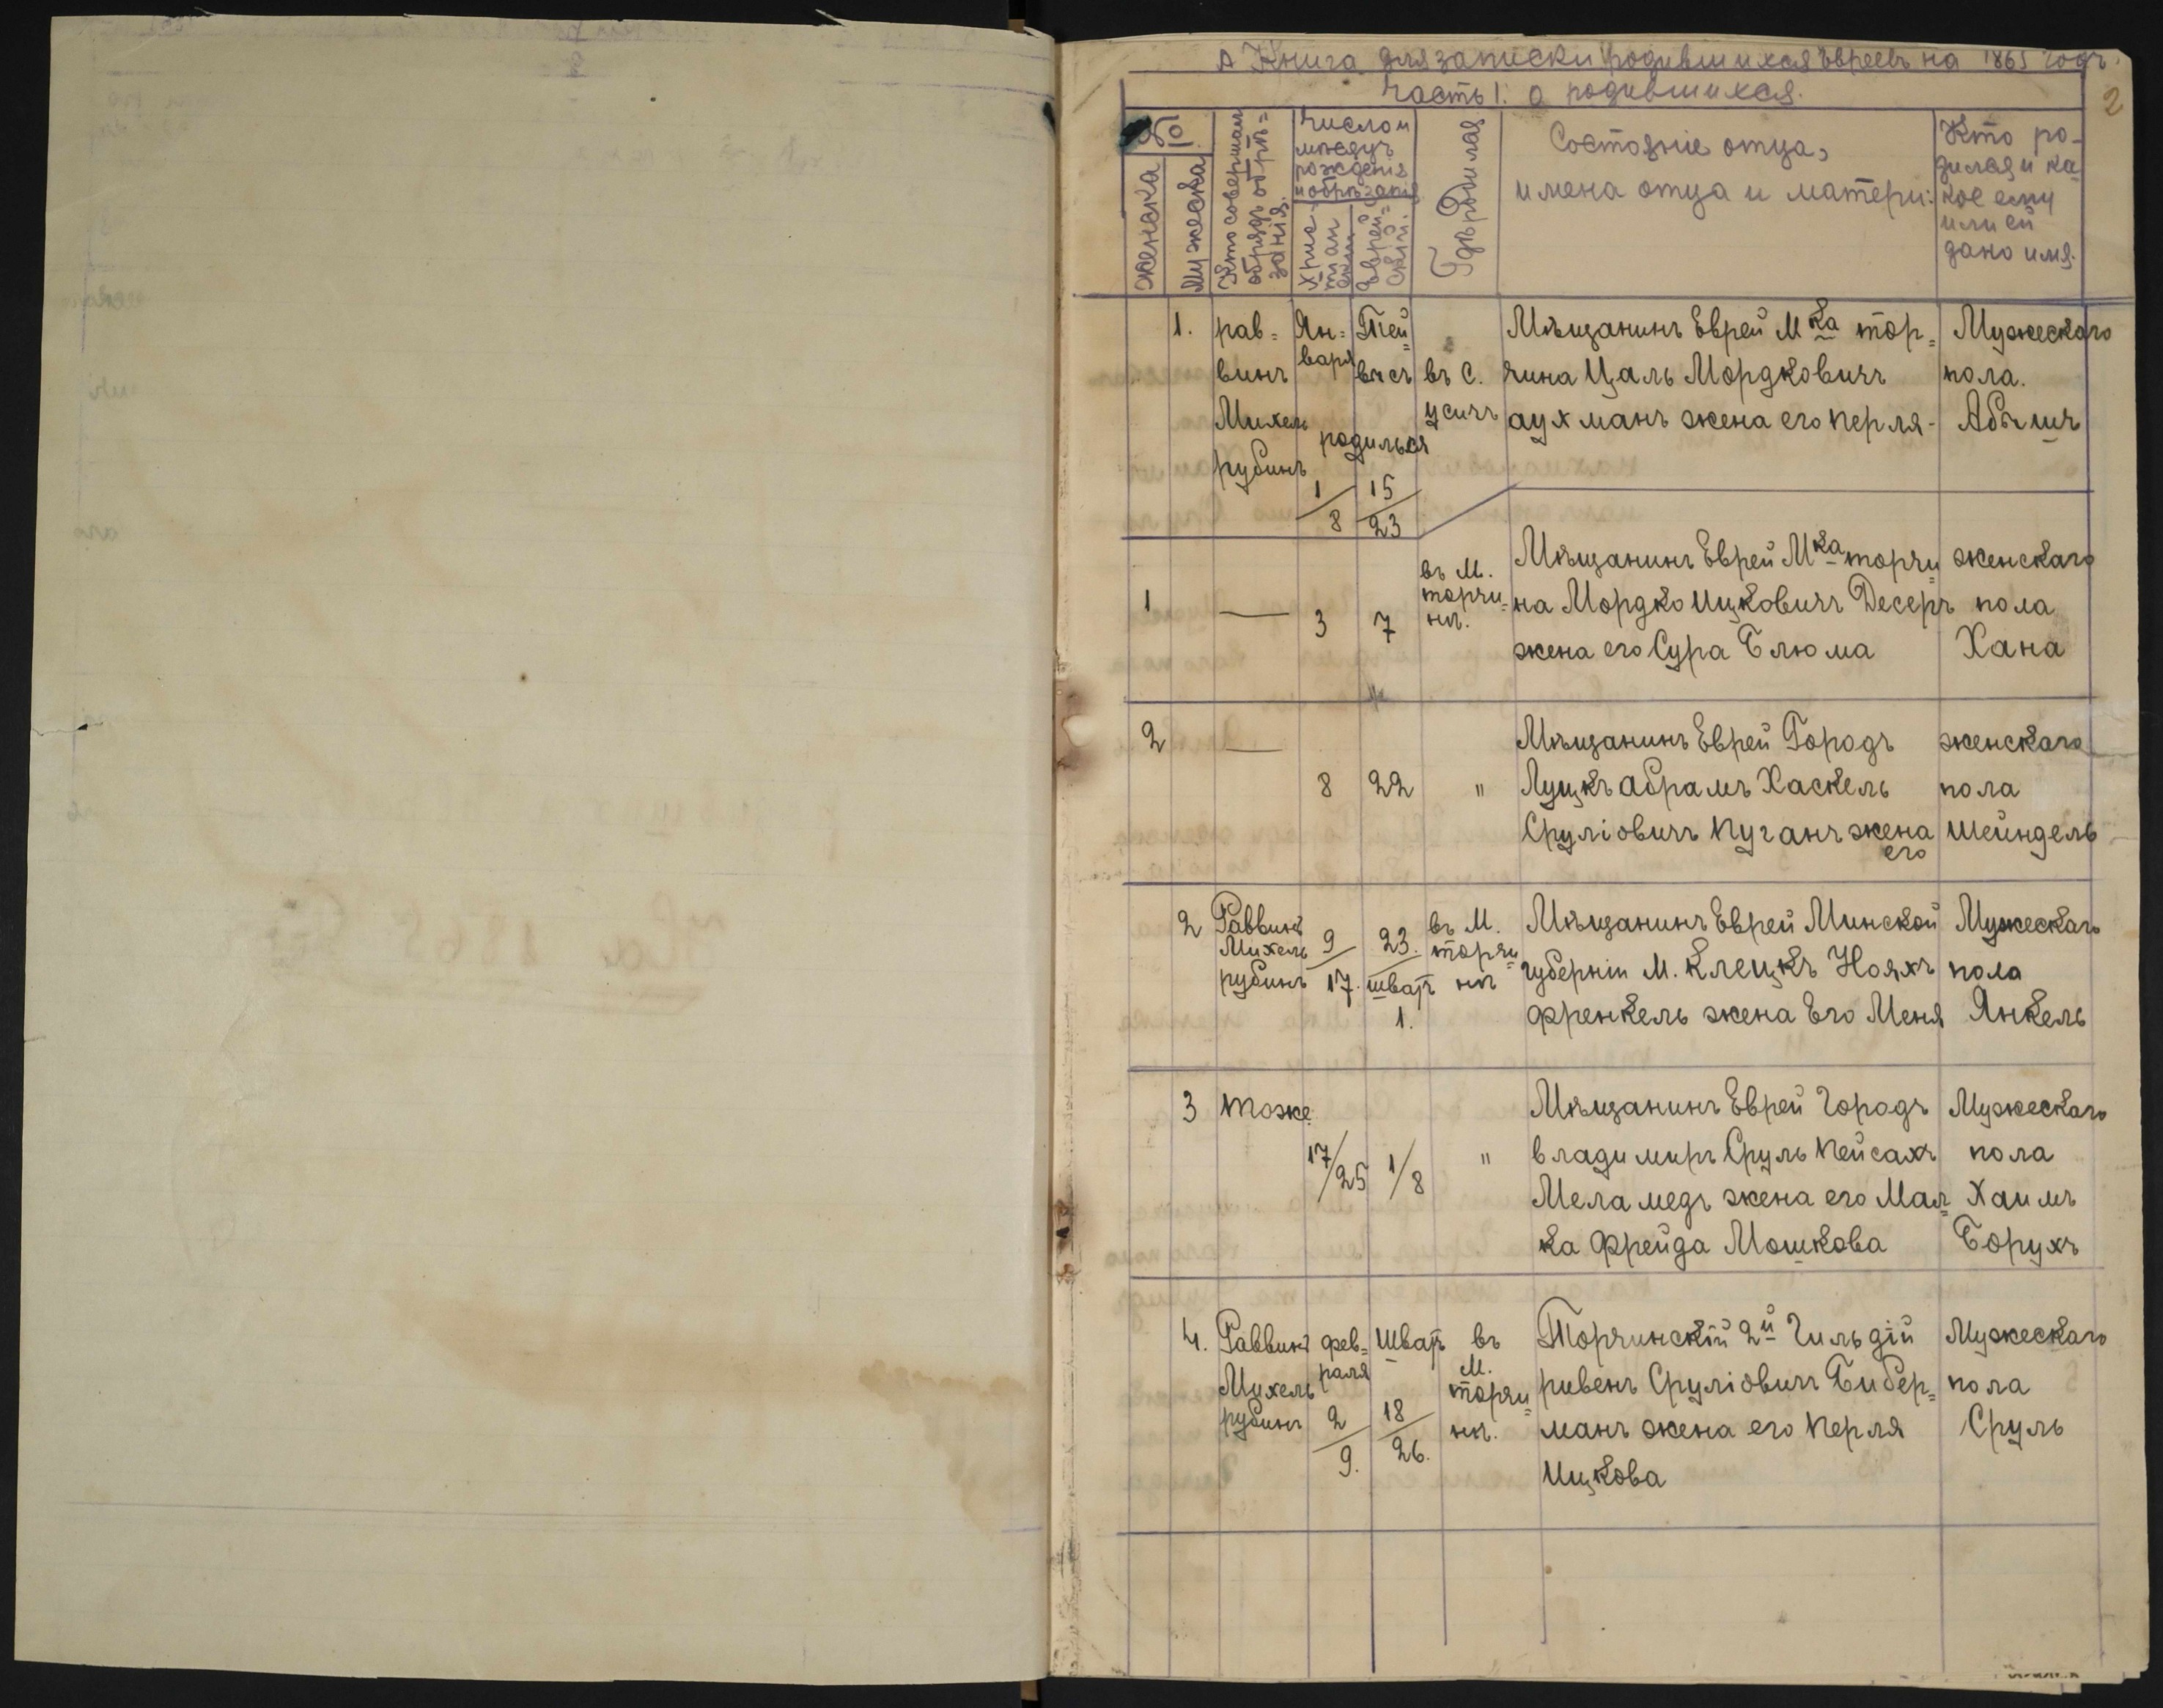 А Книга для записки родившихся Евреевъ на 1865 годъ.
Часть 1. о родившихся.
2
№
женска
Мужеска
Кто совершал
обрядъ обрѣ=
занія.
Число и
мѣсяцъ
рожденія
и обрѣзанія
Хрис-
тіан
скій
Еврей=
скій.
Гдѣ родился
Состояніе отца,
имена отца и матери:
Кто ро-
дился и ка
кое ему
или ей
дано имя.
1.
рав=
винъ
Михель
рубинъ
Ян=
варя
Тей
вѣсъ
родилься
1/8
15/23
въ С.
усичъ
Мѣщанинъ Еврей Мка тор=
чина Цаль Мордковичъ
аухманъ жена его перля-
Мужескаго
пола.
Абѣ шъ
1
—
3
7
въ М.
торчи=
нѣ.
Мѣщанинъ Еврей Мка торчи=
на Мордко Ицковичъ Десеръ
жена его Сура Блюма
женскаго
пола
Хана
2
—
8
22
"
Мѣщанинъ Еврей Городъ
Луцкъ абрамъ Хаскель
Сруліовичъ Куганъ жена
его
женскаго
пола
шейндель
2
Раввинъ
Михель
рубинъ
9/17.
23.
шватъ
1.
въ М.
торчи=
нѣ
Мѣщанинъ Еврей Минской
губерніи М. Клецкъ Нояхъ
френкель жена Его Меня
Мужескаго
пола
Янкель
3
тоже
17/25
1/8
"
Мѣщанинъ Еврей городъ
владимиръ Сруль пейсахъ
Меламедъ жена его Мал=
ка Фрейда Мошкова
Мужескаго
пола
Хаимъ
Борухъ
4.
Раввинъ
Михель
рубинъ
фев=
раля
2/9.
Шватъ
18/26.
въ
М.
торчи=
нѣ.
Торчинскій 2й гильдій
ривенъ Сруліовичъ Бибер=
манъ жена его перля
Ицкова
Мужескаго
пола
Сруль